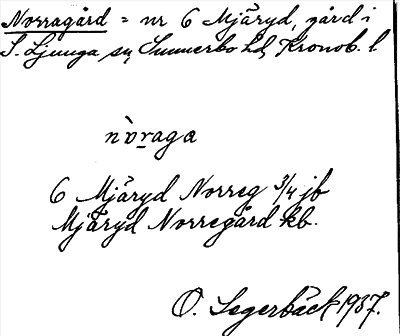 Norragård = nr 6 Mjäryd, gård i
S. Ljunga sn, Sunnerbo hd, Kronob. l.
nò̱raga
6 Mjäryd Norreg 3/4 jb
Mjäryd Norregård kb.
O. Segerbäck 1937.